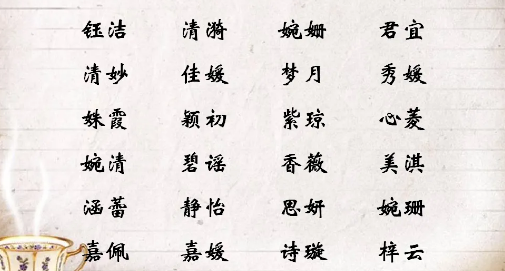 钰洁 清漪 婉姗 君宜
清妙 佳媛 梦月 秀媛
姝霞 颖初 紫琼 心菱
婉清 碧谣 香薇 美淇
涵蕾 静怡 思妍 婉珊
嘉佩 嘉媛 诗璇 梓云